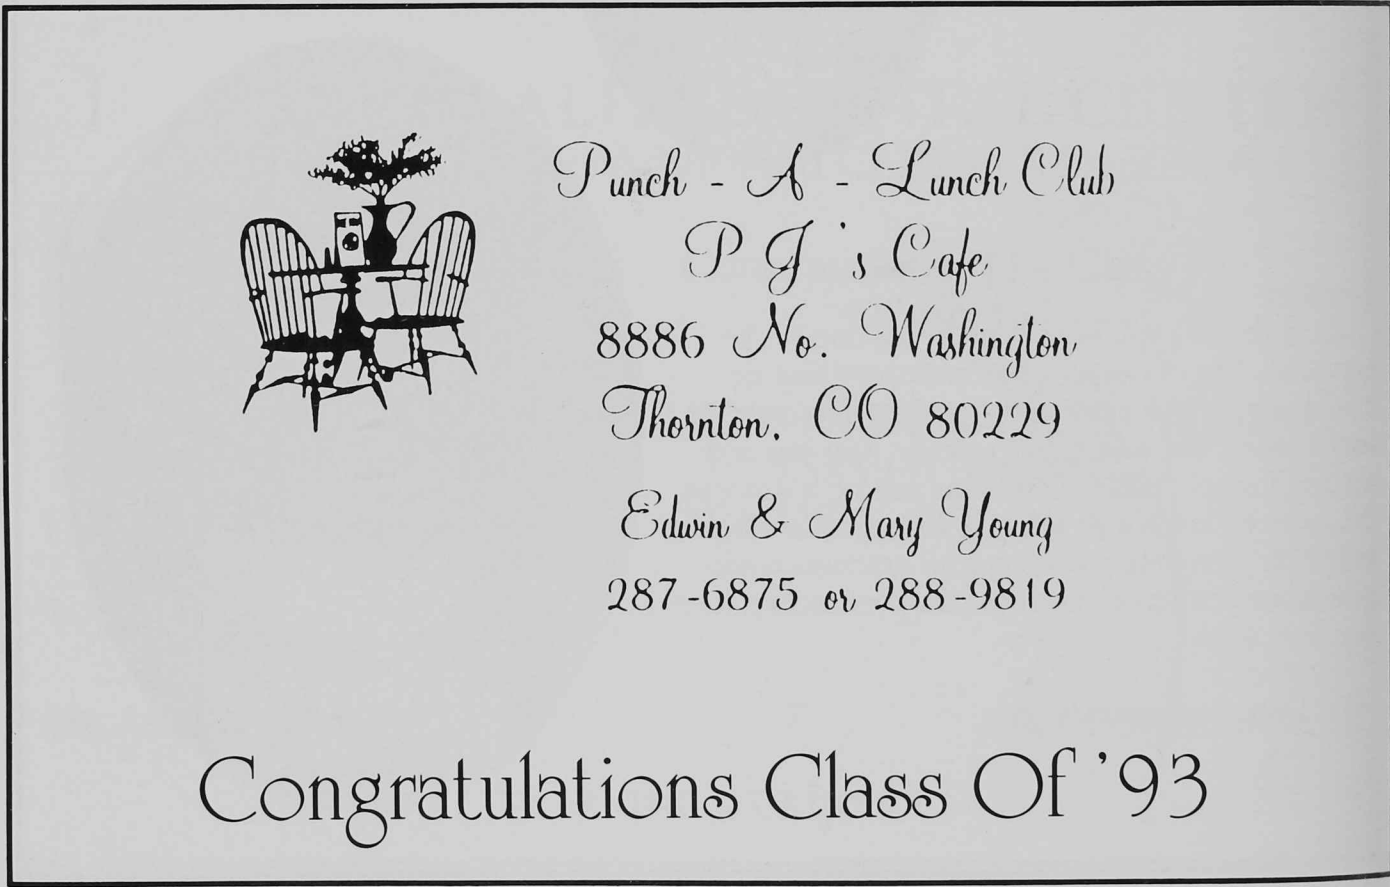 Punch - A - Lunch Club
P J's Cafe
8886 No. Washington
Thornton, CO 80229
Edwin & Mary Young
287-6875 or 288-9819
Congratulations Class Of '93